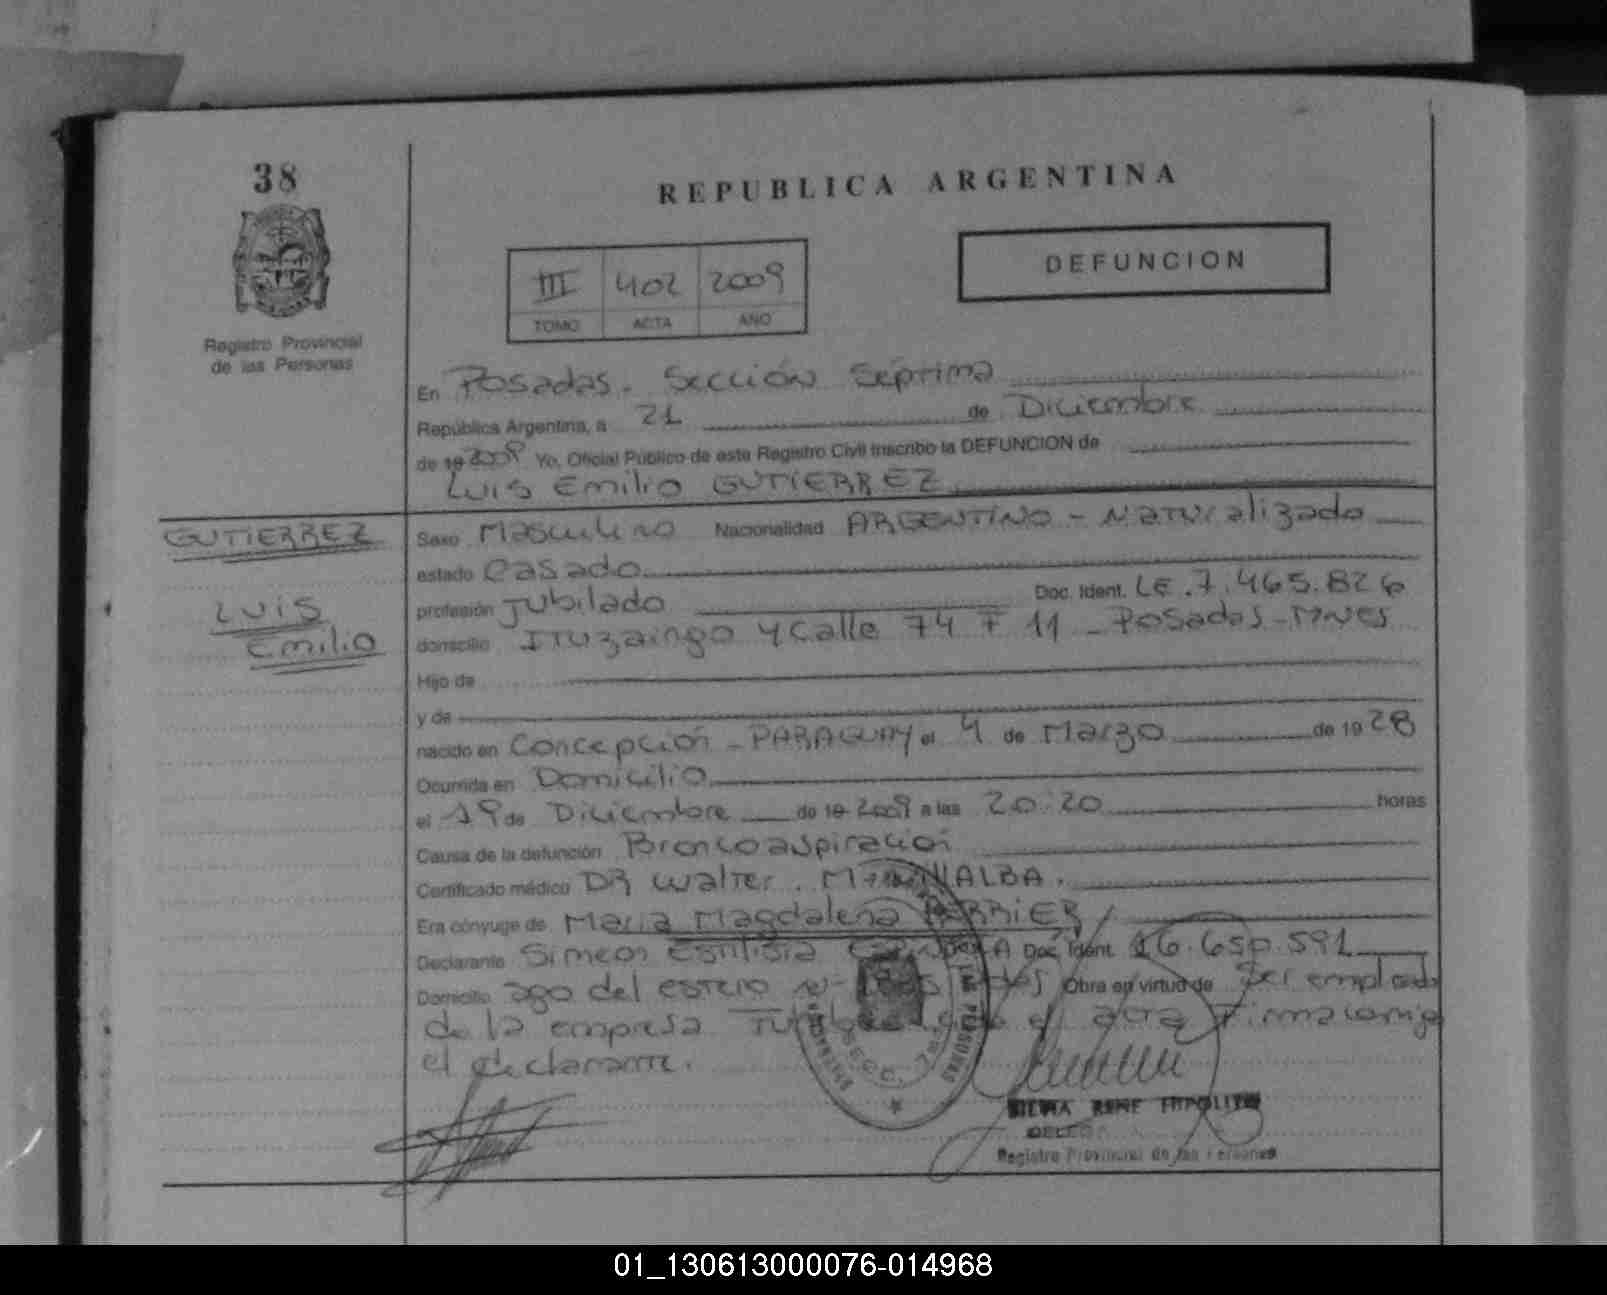 38
REPUBLICA ARGENTINA
DEFUNCION
III 402 2009
TOMO ACTA AÑO
Registro Provincial
de las Personas
En Posadas. Sección Séptima
República Argentina, a 21 de Diciembre
de 19 2009 Yo, Oficial Público de este Registro Civil inscribo la DEFUNCION de
Luis Emilio GUTIERREZ
GUTIERREZ
Luis
Emilio
Sexo Masculino Nacionalidad ARGENTINO - Naturalizado
estado Casado
profesión Jubilado Doc. Ident. LE. 7.465.826
domicilio Ituzaingo y Calle 74 F 11 - Posadas - Mnes
Hijo de
y de
nacido en Concepción - PARAGUAY el 4 de Marzo de 19 28
Ocurrida en Domicilio
el 19 de Diciembre de 19 2009 a las 20:20 horas
Causa de la defunción Broncoaspiración
Certificado médico DR Walter. ALBA.
Era cónyuge de Maria Magdalena
Declarante Simeon Doc. Ident. 16.650.591
Domicilio ago del estero Obra en virtud de Ser empleado
de la empresa el acta Firma conmigo
el declarante.
SECC. 7ma
LAS PERSONAS
SILVIA RENE HIPOLITO
DELEGADA
Registro Provincial de las Personas
01_130613000076-014968